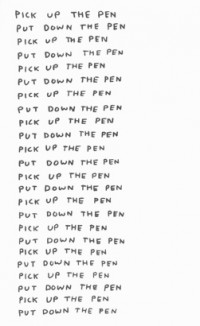 PICK UP THE PEN
PUT DOWN THE PEN
PICK UP THE PEN
PUT DOWN THE PEN
PICK UP THE PEN
PUT DOWN THE PEN
PICK UP THE PEN
PUT DOWN THE PEN
PICK UP THE PEN
PUT DOWN THE PEN
PICK UP THE PEN
PUT DOWN THE PEN
PICK UP THE PEN
PUT DOWN THE PEN
PICK UP THE PEN
PUT DOWN THE PEN
PICK UP THE PEN
PUT DOWN THE PEN
PICK UP THE PEN
PUT DOWN THE PEN
PICK UP THE PEN
PUT DOWN THE PEN
PICK UP THE PEN
PUT DOWN THE PEN